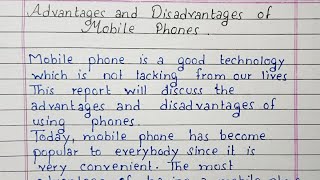 Advantages and Disadvantages of
Mobile Phones.
Mobile phone is a good technology
which is not lacking from our lives
This report will discuss the
advantages and disadvantages of
using phones.
Today, mobile phone has become
popular to everybody since it is
very convenient. The most